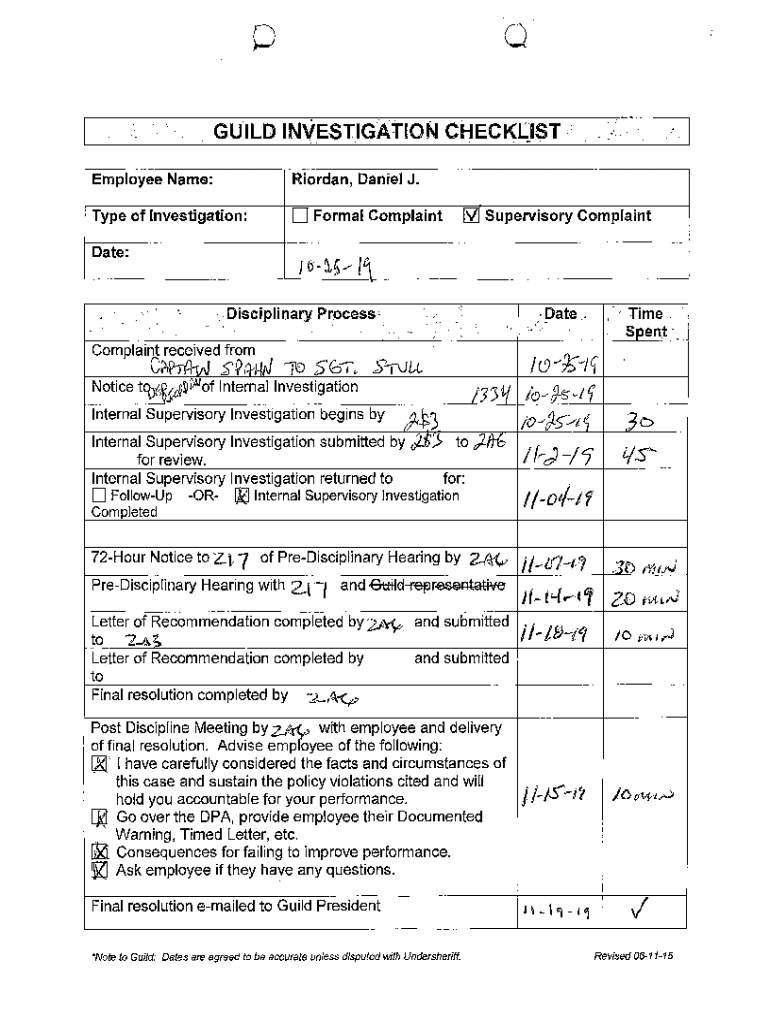 GUILD INVESTIGATION CHECKLIST
Employee Name: Riordan, Daniel J.
Type of Investigation: ☐ Formal Complaint ☑ Supervisory Complaint
Date: 10-25-19
Disciplinary Process Date Time Spent
Complaint received from
CAPTAIN SPAHN TO SGT. STULL 10-25-19
Notice to of Internal Investigation 1334 10-25-19
Internal Supervisory Investigation begins by 2B3 10-25-19 30
Internal Supervisory Investigation submitted by 2B3 to 2A6 11-2-19 45
for review.
Internal Supervisory Investigation returned to for:
☐ Follow-Up -OR- ☒ Internal Supervisory Investigation 11-04-19
Completed
72-Hour Notice to 217 of Pre-Disciplinary Hearing by 2A6 11-07-19 30 min
Pre-Disciplinary Hearing with 217 and Guild representative 11-14-19 20 min
Letter of Recommendation completed by 2A6 and submitted 11-18-19 10 min
to 2A3
Letter of Recommendation completed by and submitted
to
Final resolution completed by 2A6
Post Discipline Meeting by 2A6 with employee and delivery
of final resolution. Advise employee of the following:
☒ I have carefully considered the facts and circumstances of
this case and sustain the policy violations cited and will
hold you accountable for your performance. 11-15-19 10 min
☒ Go over the DPA, provide employee their Documented
Warning, Timed Letter, etc.
☒ Consequences for failing to improve performance.
☒ Ask employee if they have any questions.
Final resolution e-mailed to Guild President 11-19-19 ✓
*Note to Guild: Dates are agreed to be accurate unless disputed with Undersheriff. Revised 06-11-15